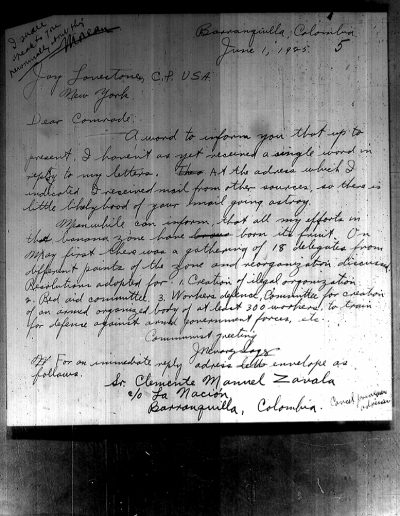 I shall
speak to you
personally and
Barranquilla, Colombia
June 1, 1925. 5
Jay Lovestone, C.P. USA.
New York
Dear Comrade:
A word to inform you that up to
present, I haven't as yet received a single word in
reply to my letters. At the adress which I
indicated I received mail from other sources, so there is
little likelyhood of your email going astray.
Meanwhile can inform, that all my efforts in
that banana zone have born its fruit. On
May first there was a gathering of 18 delegates from
different points of the zone and reorganization discussed.
Resolutions adopted for: 1. Creation of illegal organization
2. Red aid committee. 3. Workers defence Committee for creation
of an armed organized body of at least 300 workers, to train
for defense against armed government forces, etc.
Communist greeting
For an immediate reply adress envelope as
follows.
Sr. Clemente Manuel Zavala
c/o La Nación
Barranquilla, Colombia.
Cancel